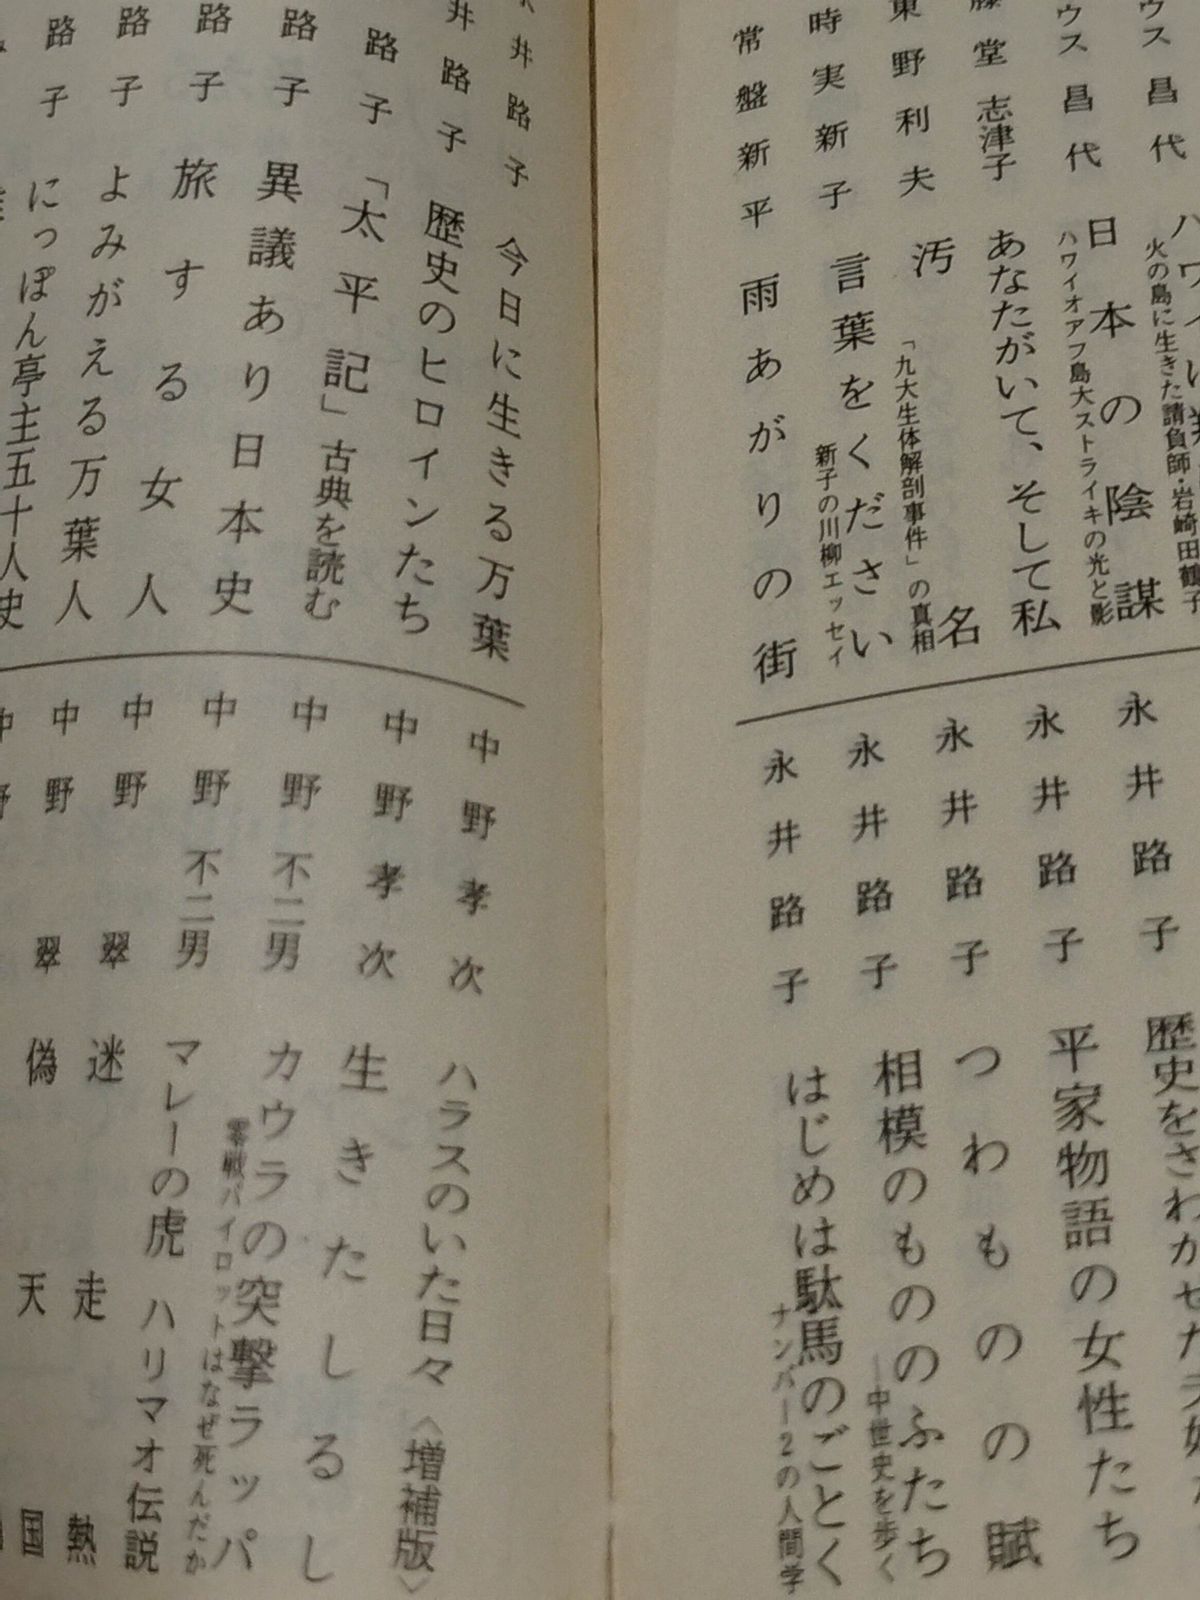 ウス昌代
火の島に生きた請負師・岩崎田鶴子
ウス昌代 日本の陰謀
ハワイオアフ島大ストライキの光と影
藤堂志津子 あなたがいて、そして私
東野利夫 汚名
「九大生体解剖事件」の真相
時実新子 言葉をください
新子の川柳エッセイ
常盤新平 雨あがりの街
永井路子
永井路子 平家物語の女性たち
永井路子 つわものの賦
永井路子 相模のもののふたち
―中世史を歩く
永井路子 はじめは駄馬のごとく
ナンバー2の人間学
井路子 今日に生きる万葉
井路子 歴史のヒロインたち
路子 「太平記」古典を読む
路子 異議あり日本史
路子 旅する女人
路子 よみがえる万葉人
路子 にっぽん亭主五十人史
中野孝次 ハラスのいた日々〈増補版〉
中野孝次 生きたしるし
中野不二男 カウラの突撃ラッパ
零戦パイロットはなぜ死んだか
中野不二男 マレーの虎 ハリマオ伝説
中野翠 迷走熱
中野翠 偽天国